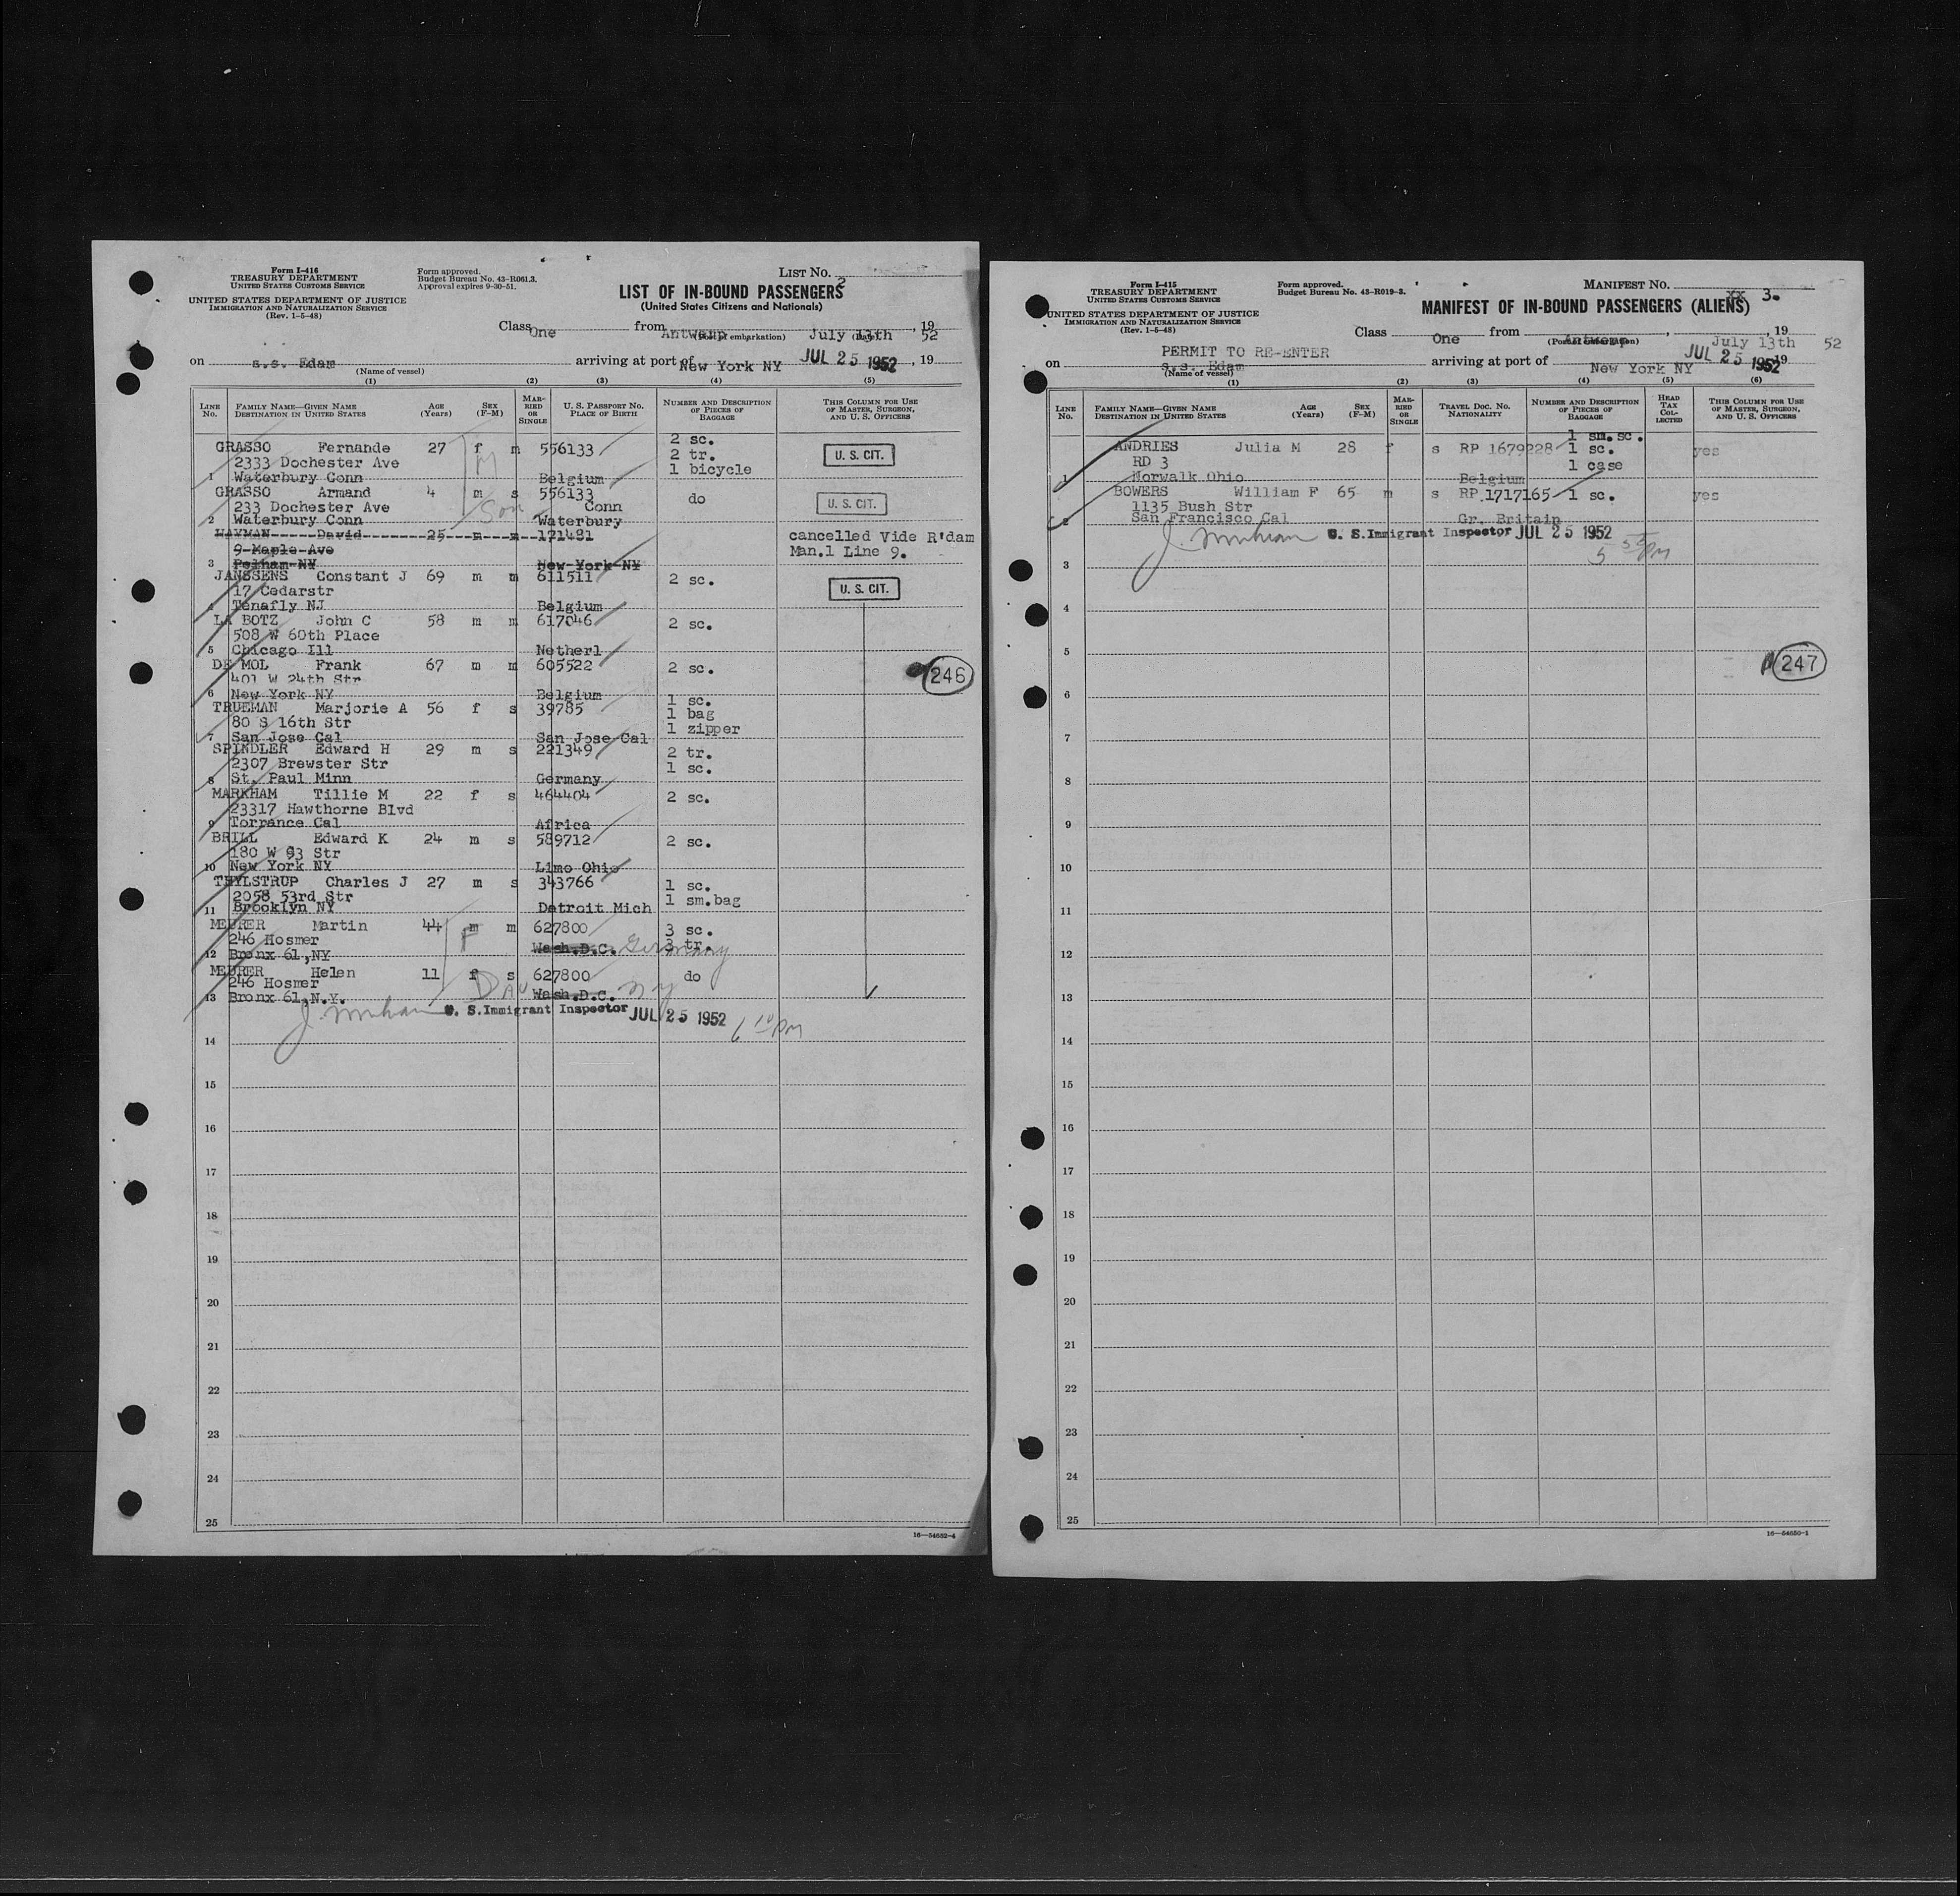 Form I-416
TREASURY DEPARTMENT
UNITED STATES CUSTOMS SERVICE
UNITED STATES DEPARTMENT OF JUSTICE
IMMIGRATION AND NATURALIZATION SERVICE
(Rev. 1-5-48)
Form approved.
Budget Bureau No. 43-R061.3.
Approval expires 9-30-51.
LIST NO. 2
LIST OF IN-BOUND PASSENGERS
(United States Citizens and Nationals)
Class One from Antwerp July 13th, 19 52
(Port of embarkation) (Date)
on s.s. Edam arriving at port of New York NY JUL 25 1952, 19
(Name of vessel)
(1) (2) (3) (4) (5)
LINE NO. FAMILY NAME—GIVEN NAME DESTINATION IN UNITED STATES AGE (Years) SEX (F-M) MARRIED OR SINGLE U. S. PASSPORT NO. PLACE OF BIRTH NUMBER AND DESCRIPTION OF PIECES OF BAGGAGE THIS COLUMN FOR USE OF MASTER, SURGEON, AND U. S. OFFICERS
GRASSO Fernande 27 f m 556133 2 sc. U. S. CIT.
2333 Dochester Ave M 2 tr.
1 Waterbury Conn Belgium 1 bicycle
GRASSO Armand 4 m s 556133 do U. S. CIT.
233 Dochester Ave Son Conn
2 Waterbury Conn Waterbury
HAYMAN David 25 m m 171481 cancelled Vide R'dam
9 Maple Ave Man.1 Line 9.
3 Pelham NY New York NY
JANSSENS Constant J 69 m m 611511 2 sc. U. S. CIT.
17 Cedarstr
4 Tenafly NJ Belgium
LA BOTZ John C 58 m m 617046 2 sc.
508 W 60th Place
5 Chicago Ill Netherl
DE MOL Frank 67 m m 605522 2 sc. 246
401 W 24th Str
6 New York NY Belgium
TRUEMAN Marjorie A 56 f s 39785 1 sc.
80 S 16th Str 1 bag
7 San Jose Cal San Jose Cal 1 zipper
SPINDLER Edward H 29 m s 221349 2 tr.
2307 Brewster Str 1 sc.
8 St. Paul Minn Germany
MARKHAM Tillie M 22 f s 464404 2 sc.
23317 Hawthorne Blvd
9 Torrance Cal Africa
BRILL Edward K 24 m s 589712 2 sc.
180 W 93 Str
10 New York NY Limo Ohio
THYLSTRUP Charles J 27 m s 343766 1 sc.
2058 53rd Str 1 sm.bag
11 Brooklyn NY Detroit Mich
MEURER Martin 44 m m 627800 3 sc.
246 Hosmer F 3 tr.
12 Bronx 61,NY Wash.D.C. Germany
MEURER Helen 11 f s 627800 do
246 Hosmer Dau
13 Bronx 61,N.Y. Wash.D.C. NY
U. S. Immigrant Inspector JUL 25 1952 6 10 PM
14
15
16
17
18
19
20
21
22
23
24
25
16—54652-4
Form I-415
TREASURY DEPARTMENT
UNITED STATES CUSTOMS SERVICE
UNITED STATES DEPARTMENT OF JUSTICE
IMMIGRATION AND NATURALIZATION SERVICE
(Rev. 1-5-48)
Form approved.
Budget Bureau No. 43-R019-3.
MANIFEST NO. xx 3.
MANIFEST OF IN-BOUND PASSENGERS (ALIENS)
Class One from Antwerp, July 13th, 19 52
(Port of embarkation)
PERMIT TO RE-ENTER
on s.s. Edam arriving at port of New York NY JUL 25 1952, 19
(Name of vessel)
(1) (2) (3) (4) (5) (6)
LINE NO. FAMILY NAME—GIVEN NAME DESTINATION IN UNITED STATES AGE (Years) SEX (F-M) MARRIED OR SINGLE TRAVEL DOC. NO. NATIONALITY NUMBER AND DESCRIPTION OF PIECES OF BAGGAGE HEAD TAX COLLECTED THIS COLUMN FOR USE OF MASTER, SURGEON, AND U. S. OFFICERS
1 sm.sc.
ANDRIES Julia M 28 f s RP 1679228 1 sc. yes
RD 3 1 case
1 Norwalk Ohio Belgium
BOWERS William F 65 m s RP 1717165 1 sc. yes
1135 Bush Str
2 San Francisco Cal Gr. Britain
U. S. Immigrant Inspector JUL 25 1952
5 55 PM
3
4
5 247
6
7
8
9
10
11
12
13
14
15
16
17
18
19
20
21
22
23
24
25
16—54650-1